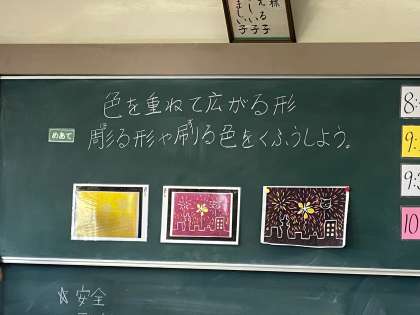 える子
しい子
ましい子
色を重ねて広がる形
めあて
彫る形や刷る色をくふうしよう。
ほ
す
8:
9:
9:
10
☆安全